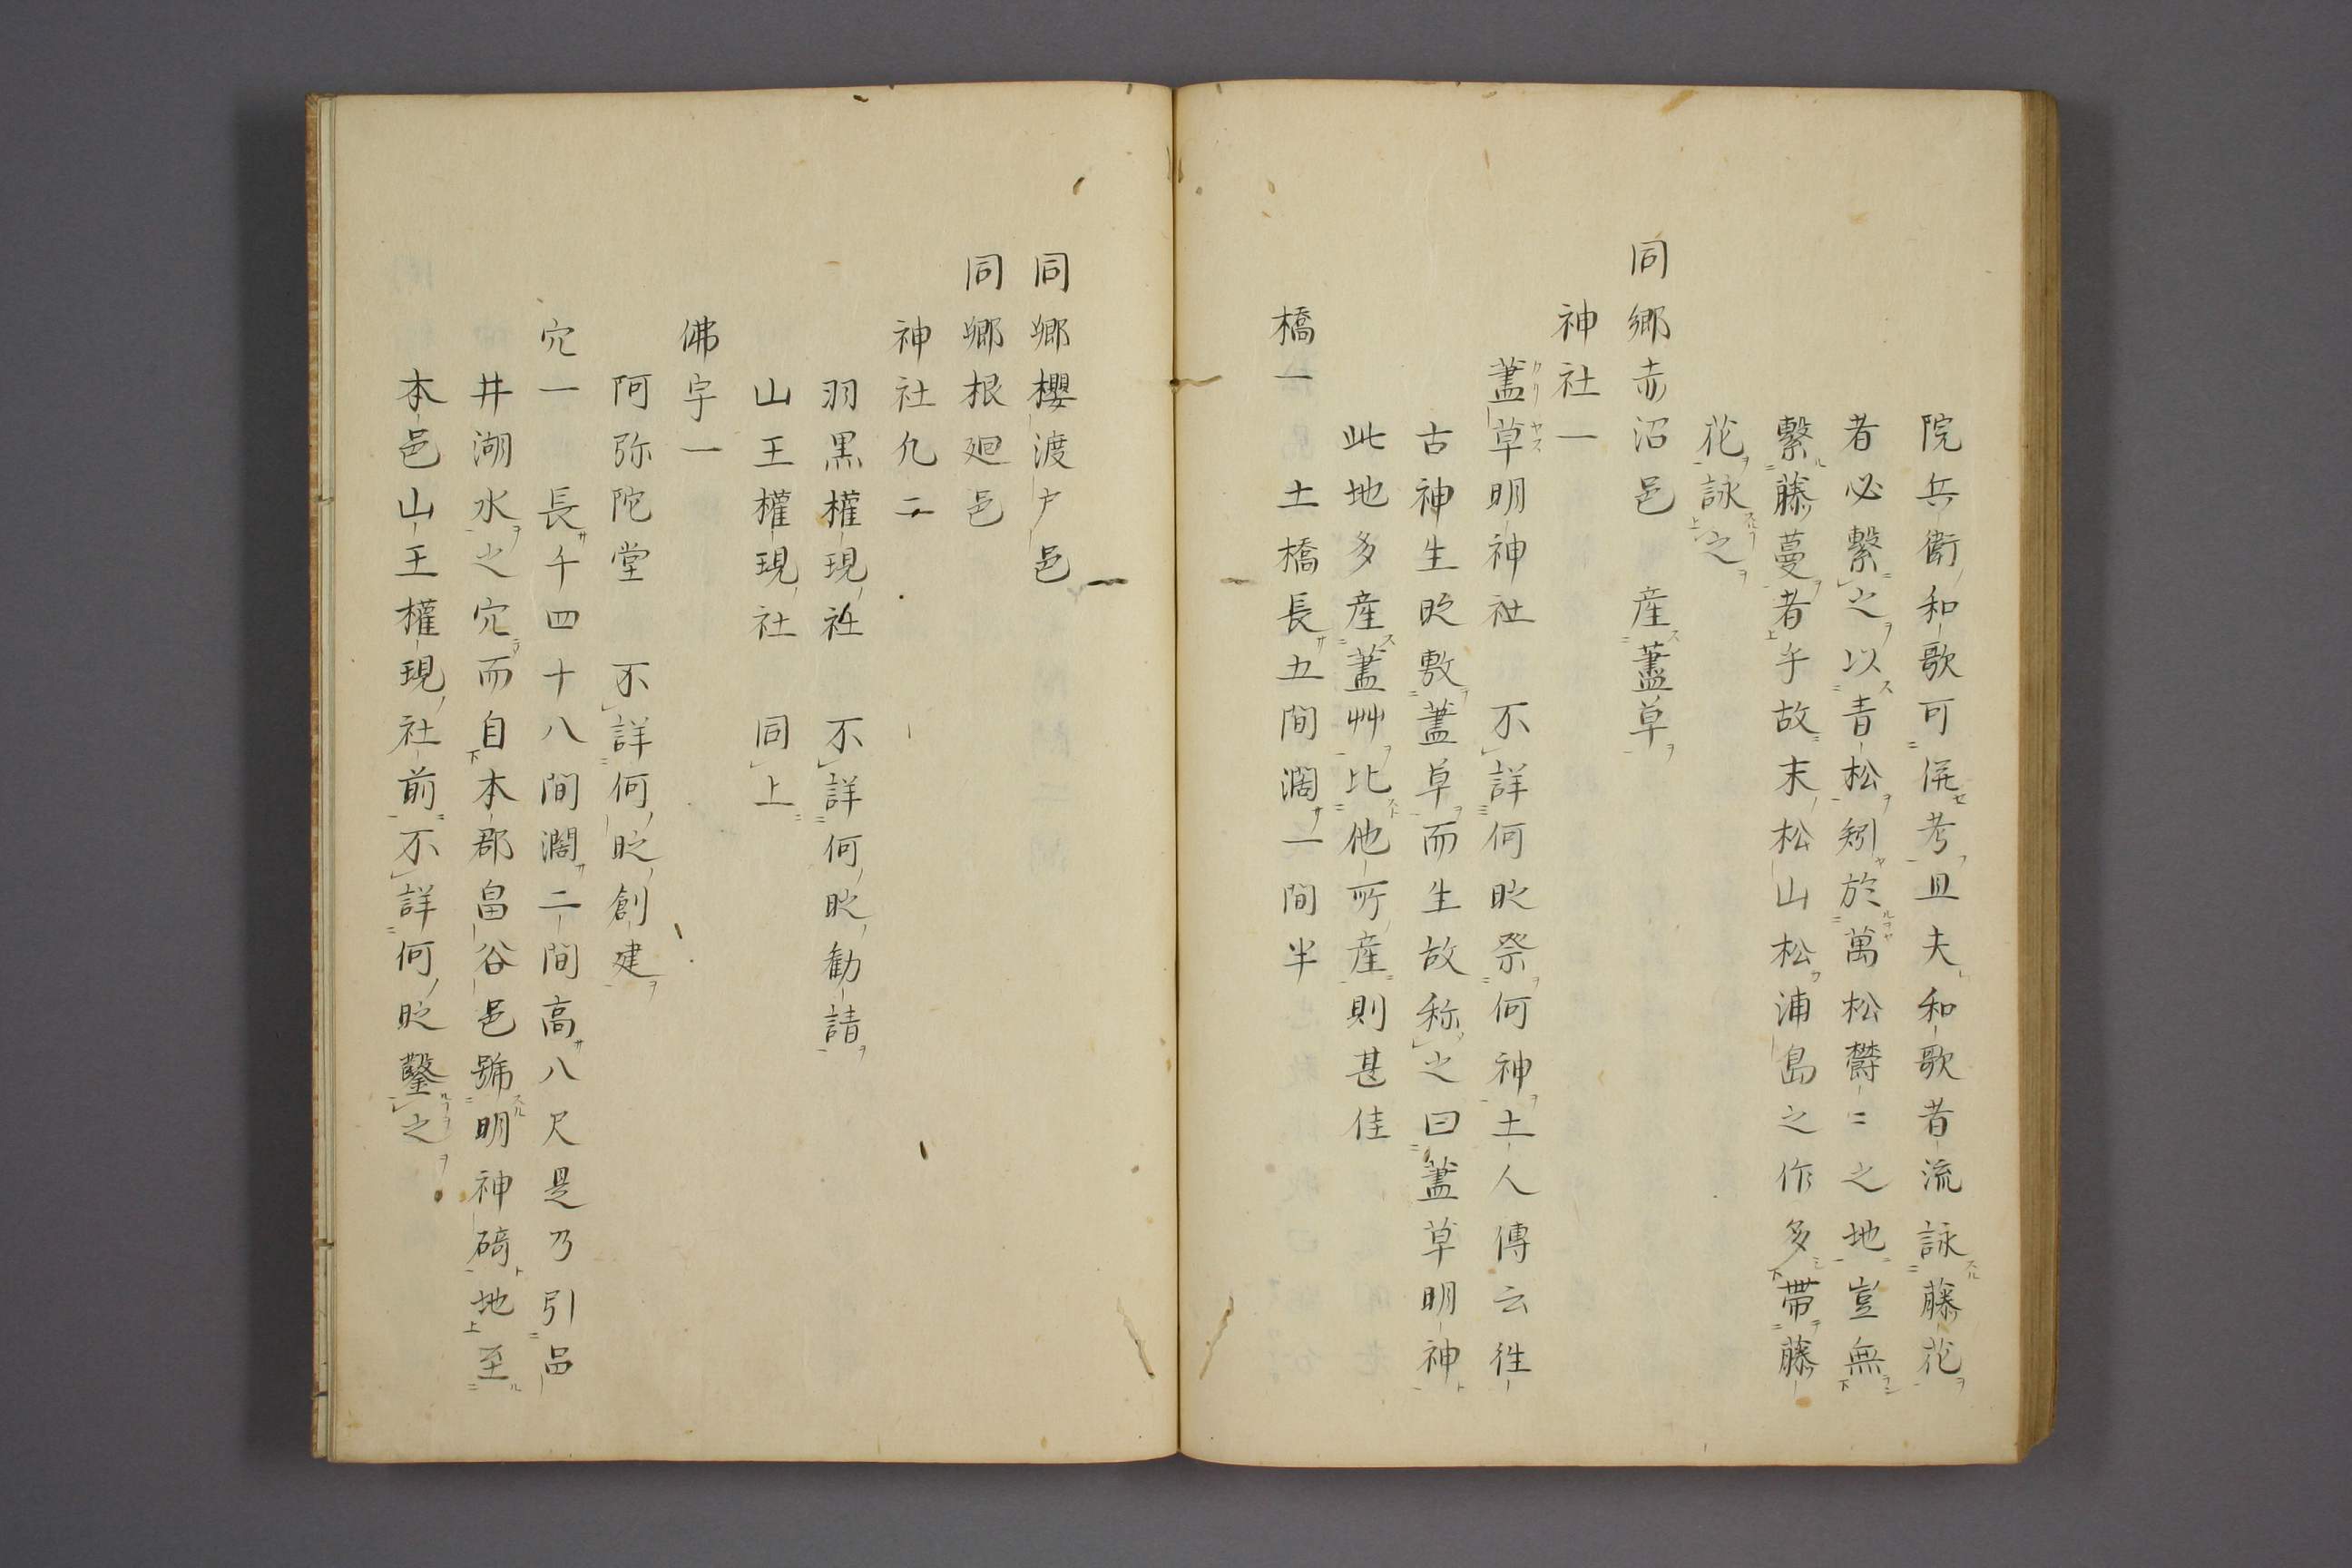 院兵衛和歌可併考且夫和歌者流詠藤花
者必繫之以青松矧於萬松欝〻之地豈無
繫藤蔓者乎故末松山松浦島之作多帶藤
花詠之
同郷赤沼邑 産藎草
神社一
藎草明神社 不詳何時祭何神土人傳云徃
古神生時敷藎草而生故称之曰藎草明神
此地多産藎艸比他所産則甚佳
橋一 土橋長五間濶一間半
同郷櫻渡戸邑
同郷根廻邑
神社凡二
羽黒權現社 不詳何時勸請
山王權現社 同上
佛宇一
阿弥陀堂 不詳何時創建
穴一 長千四十八間濶二間高八尺是乃引品
井湖水之穴而自本郡畠谷邑號明神﨑地至
本邑山王權現社前不詳何時鑿之